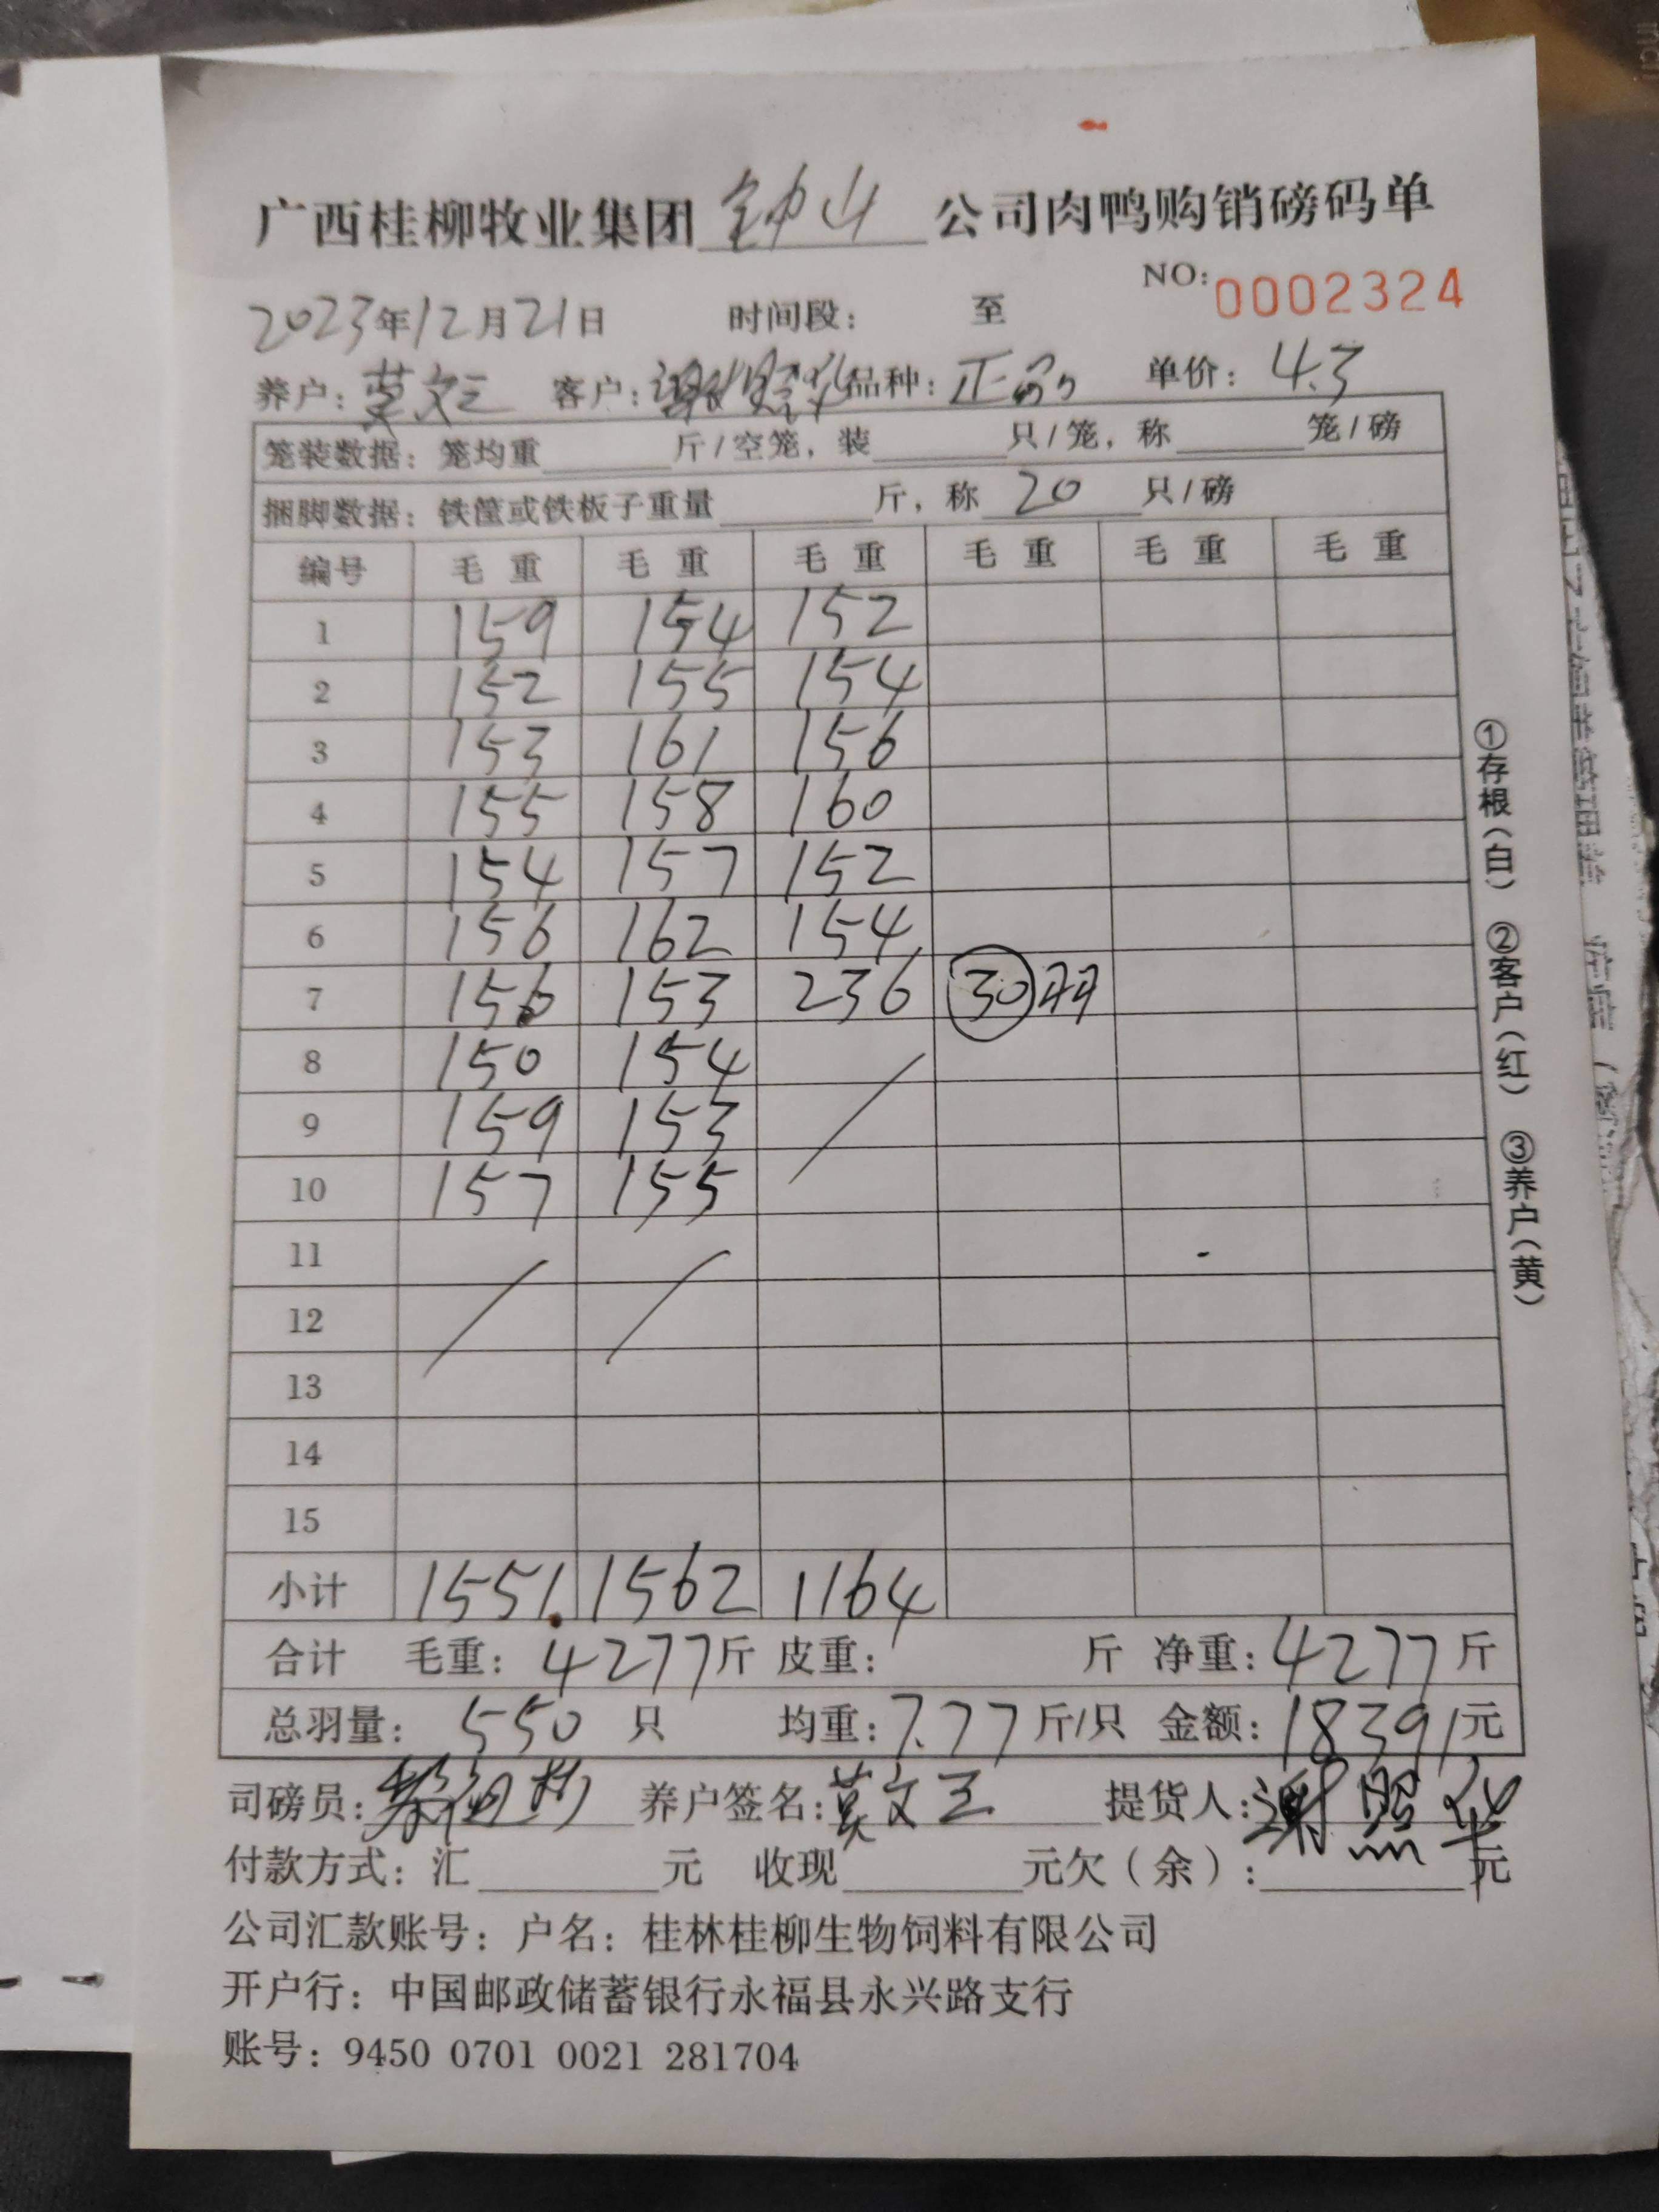 广西桂柳牧业集团 钟山 公司肉鸭购销磅码单
NO: 0002324
2023年12月21日 时间段: 至
养户: 莫文三 客户: 谢 品种: 正品 单价: 4.3
笼装数据: 笼均重 斤/空笼, 装 只/笼, 称 笼/磅
捆脚数据: 铁筐或铁板子重量 斤, 称 20 只/磅
编号 毛重 毛重 毛重 毛重 毛重 毛重
1 159 154 152
2 152 155 154
3 153 161 156
4 155 158 160
5 154 157 152
6 156 162 154
7 156 153 236 30
8 150 154
9 159 153
10 157 155
11
12
13
14
15
小计 1551 1562 1164
合计 毛重: 4277斤 皮重: 斤 净重: 4277斤
总羽量: 550 只 均重: 7.77斤/只 金额: 18391元
司磅员: 养户签名: 莫文三 提货人: 谢照华
付款方式: 汇 元 收现 元欠(余): 元
公司汇款账号: 户名: 桂林桂柳生物饲料有限公司
开户行: 中国邮政储蓄银行永福县永兴路支行
账号: 9450 0701 0021 281704
①存根(白) ②客户(红) ③养户(黄)